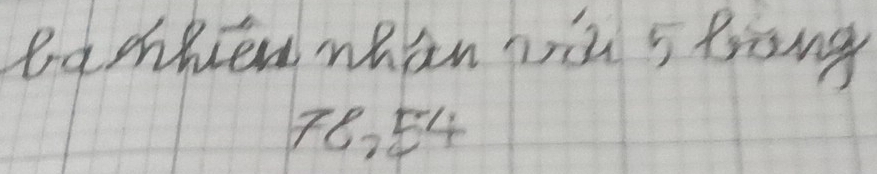 bao nhiêu nhân với 5 bằng
78,54